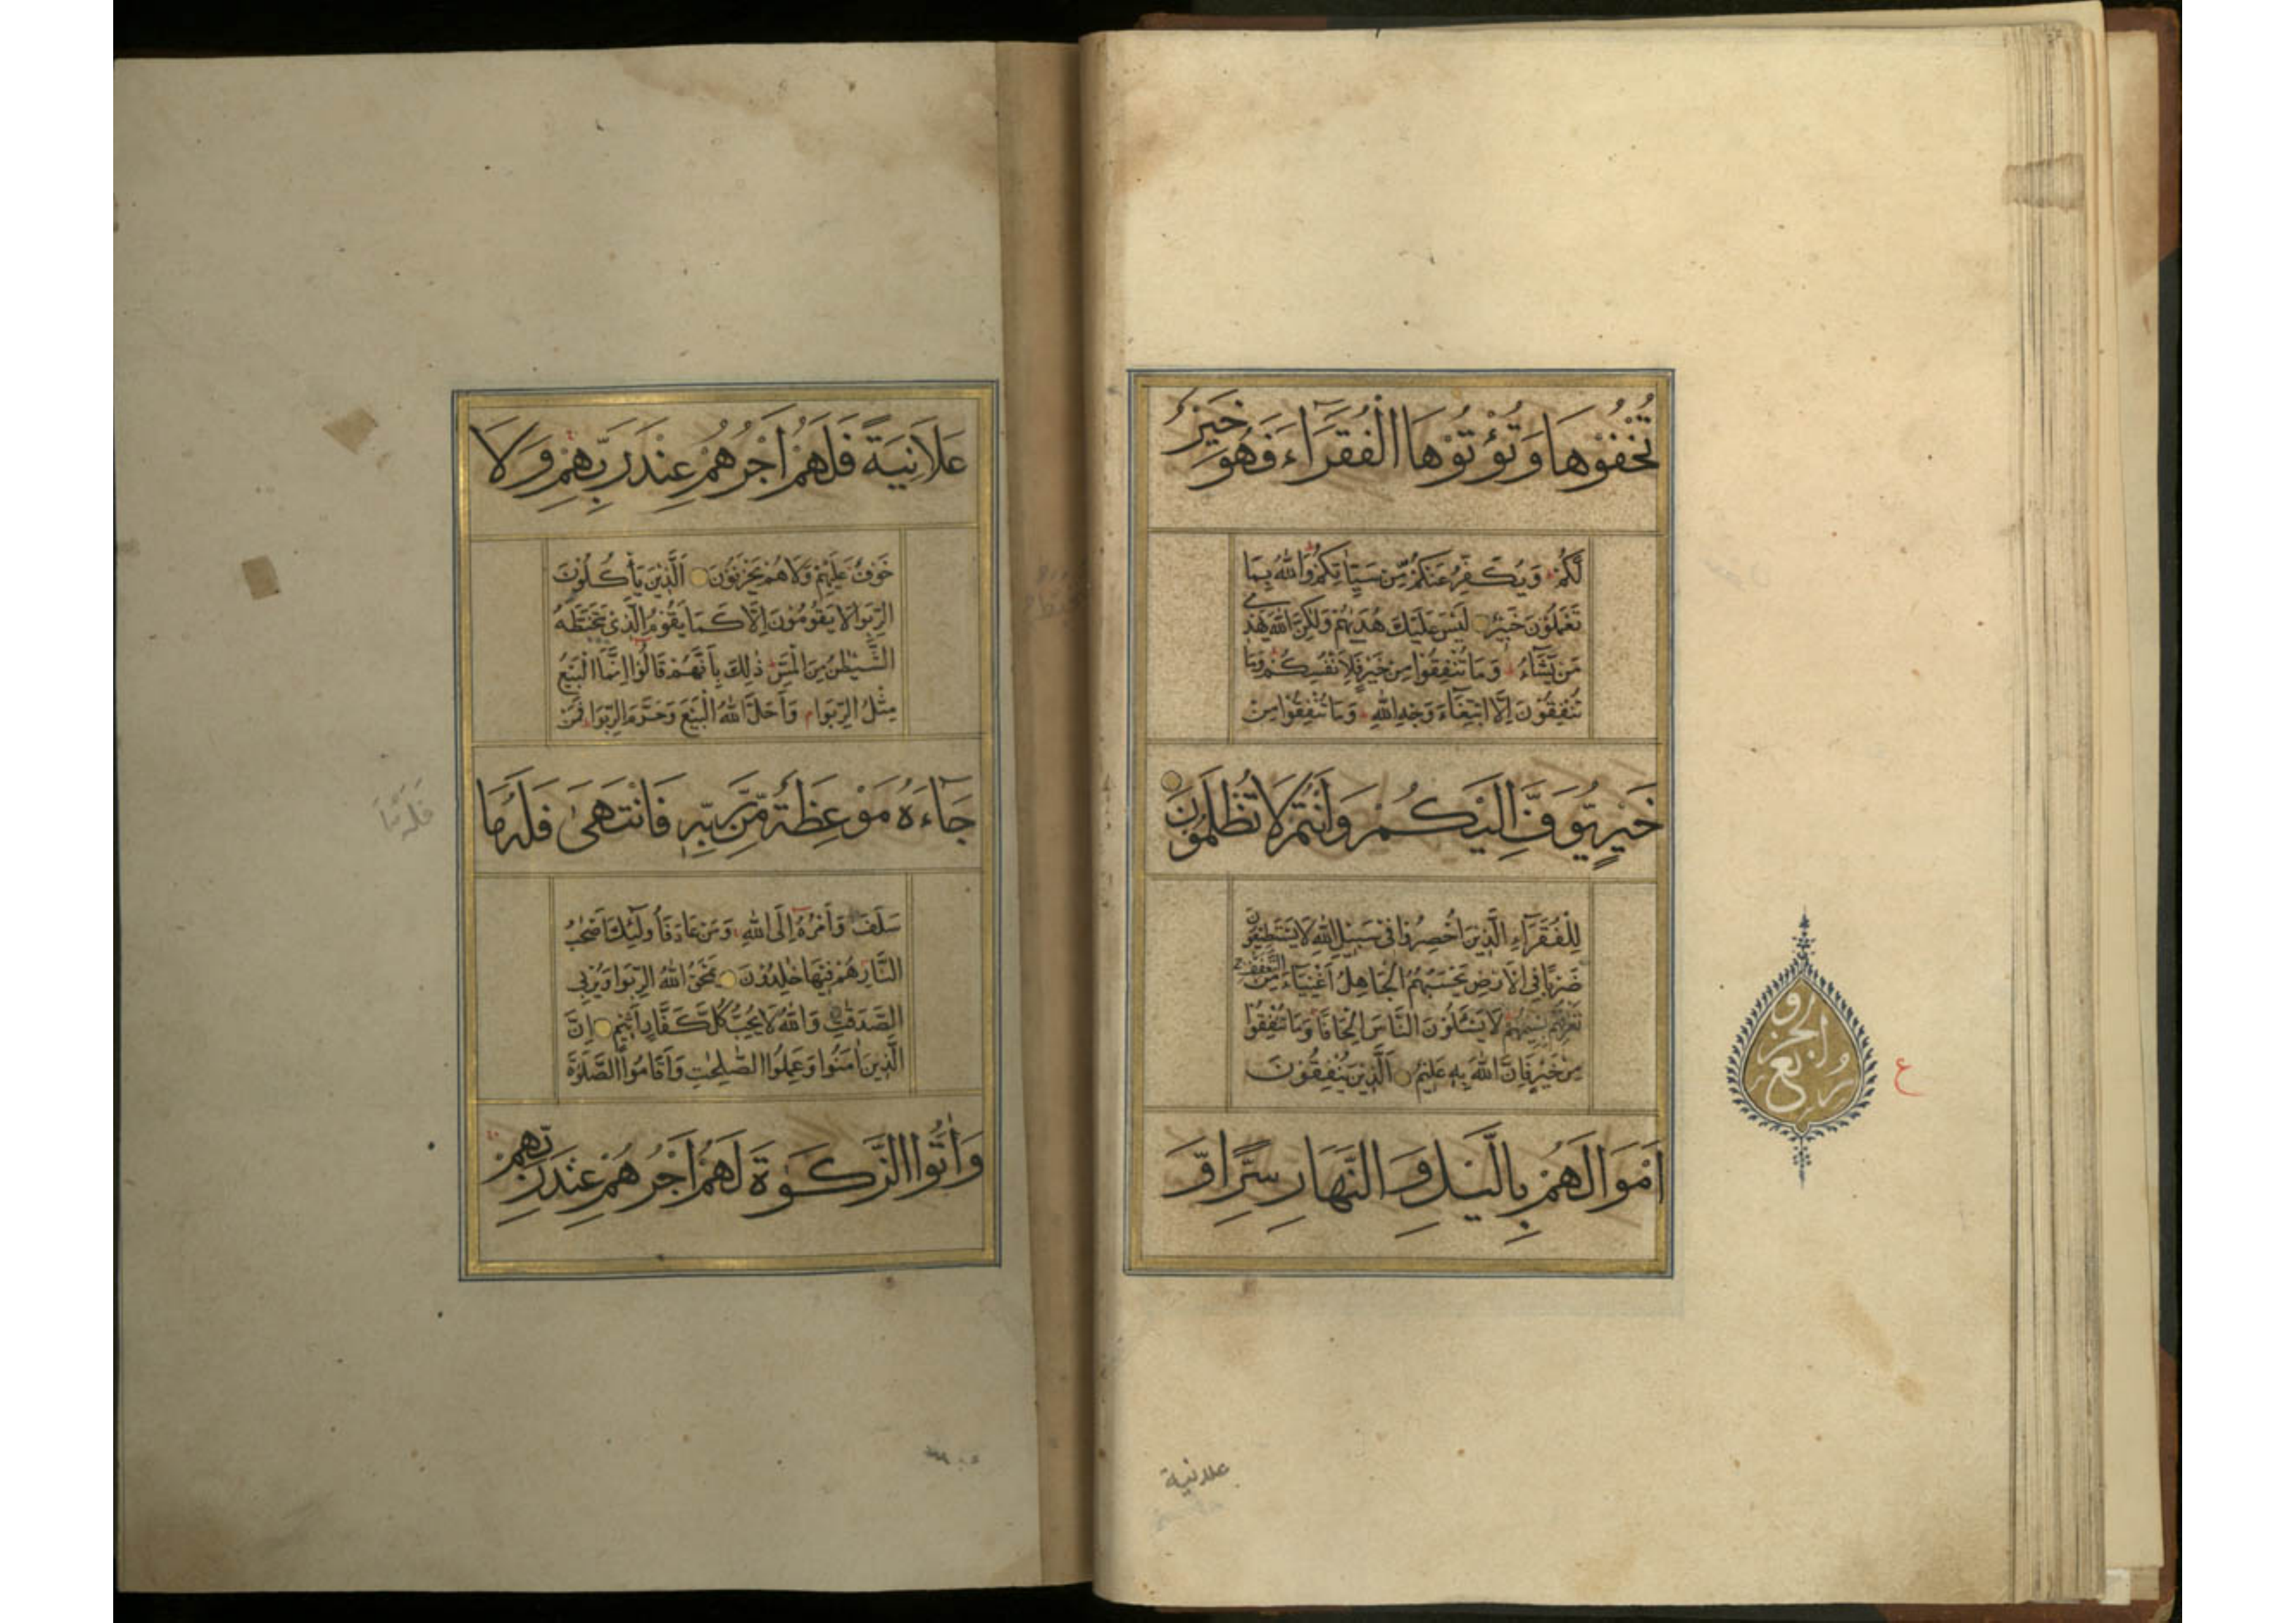 تُخْفُوْهَا وَتُؤْتُوْهَا الْفُقَرَاءَ فَهُوَ خَيْرٌ
لَّكُمْ وَيُكَفِّرُ عَنْكُمْ مِّنْ سَيِّاٰتِكُمْ وَاللّٰهُ بِمَا
تَعْمَلُوْنَ خَبِيْرٌ لَيْسَ عَلَيْكَ هُدٰىهُمْ وَلٰكِنَّ اللّٰهَ يَهْدِيْ
مَنْ يَّشَآءُ وَمَا تُنْفِقُوْا مِنْ خَيْرٍ فَلِاَنْفُسِكُمْ وَمَا
تُنْفِقُوْنَ اِلَّا ابْتِغَآءَ وَجْهِ اللّٰهِ وَمَا تُنْفِقُوْا مِنْ
خَيْرٍ يُّوَفَّ اِلَيْكُمْ وَاَنْتُمْ لَا تُظْلَمُوْنَ
لِلْفُقَرَآءِ الَّذِيْنَ اُحْصِرُوْا فِيْ سَبِيْلِ اللّٰهِ لَا يَسْتَطِيْعُوْنَ
ضَرْبًا فِي الْاَرْضِ يَحْسَبُهُمُ الْجَاهِلُ اَغْنِيَآءَ مِنَ التَّعَفُّفِ
تَعْرِفُهُمْ بِسِيْمٰهُمْ لَا يَسْئَلُوْنَ النَّاسَ اِلْحَافًا وَمَا تُنْفِقُوْا
مِنْ خَيْرٍ فَاِنَّ اللّٰهَ بِهٖ عَلِيْمٌ اَلَّذِيْنَ يُنْفِقُوْنَ
اَمْوَالَهُمْ بِالَّيْلِ وَالنَّهَارِ سِرًّا وَّ
ربع
الجزو
ع
علانية
عَلَانِيَةً فَلَهُمْ اَجْرُهُمْ عِنْدَ رَبِّهِمْ وَلَا
خَوْفٌ عَلَيْهِمْ وَلَا هُمْ يَحْزَنُوْنَ اَلَّذِيْنَ يَأْكُلُوْنَ
الرِّبٰوا لَا يَقُوْمُوْنَ اِلَّا كَمَا يَقُوْمُ الَّذِيْ يَتَخَبَّطُهُ
الشَّيْطٰنُ مِنَ الْمَسِّ ذٰلِكَ بِاَنَّهُمْ قَالُوْا اِنَّمَا الْبَيْعُ
مِثْلُ الرِّبٰوا م وَاَحَلَّ اللّٰهُ الْبَيْعَ وَحَرَّمَ الرِّبٰوا فَمَنْ
جَآءَهٗ مَوْعِظَةٌ مِّنْ رَّبِّهٖ فَانْتَهٰى فَلَهٗ مَا
فله ما
سَلَفَ وَاَمْرُهٗ اِلَى اللّٰهِ وَمَنْ عَادَ فَاُولٰٓئِكَ اَصْحٰبُ
النَّارِ هُمْ فِيْهَا خٰلِدُوْنَ يَمْحَقُ اللّٰهُ الرِّبٰوا وَيُرْبِي
الصَّدَقٰتِ وَاللّٰهُ لَا يُحِبُّ كُلَّ كَفَّارٍ اَثِيْمٍ اِنَّ
الَّذِيْنَ اٰمَنُوْا وَعَمِلُوا الصّٰلِحٰتِ وَاَقَامُوا الصَّلٰوةَ
وَاٰتَوُا الزَّكٰوةَ لَهُمْ اَجْرُهُمْ عِنْدَ رَبِّهِمْ